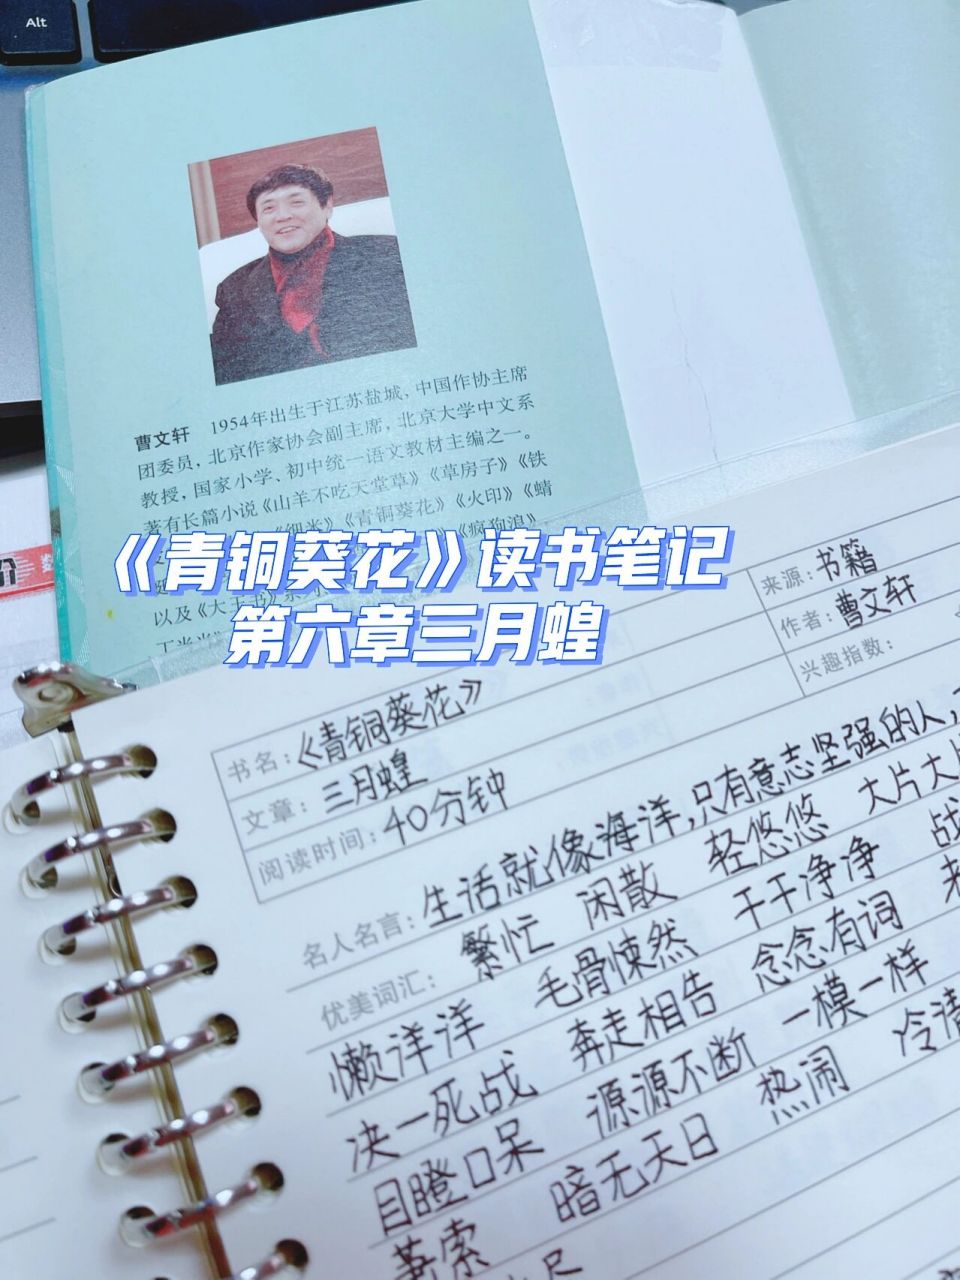 Alt
曹文轩 1954年出生于江苏盐城，中国作协主席
团委员，北京作家协会副主席，北京大学中文系
教授，国家小学、初中统一语文教材主编之一。
著有长篇小说《山羊不吃天堂草》《草房子》《铁
《细米》《青铜葵花》《火印》《蜻
《疯狗浪》
以及《大王书》系
《青铜葵花》读书笔记
第六章三月蝗
来源：书籍
作者：曹文轩
兴趣指数：
书名：《青铜葵花》
文章：三月蝗
阅读时间：40分钟
名人名言：生活就像海洋，只有意志坚强的人，
优美词汇：繁忙 闲散 轻悠悠 大片大
懒洋洋 毛骨悚然 干干净净 战
决一死战 奔走相告 念念有词
目瞪口呆 源源不断 一模一样 冷清
萧索 暗无天日 热闹